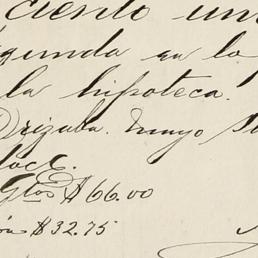 ciento un
segunda en la
la hipoteca.
Orizaba. mayo
doce.
Gtos $66.00
$32.75